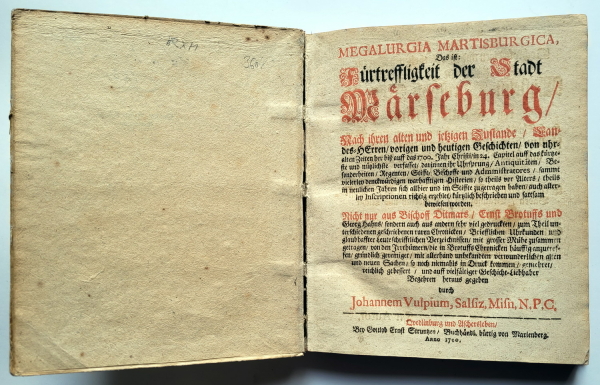 MEGALURGIA MARTISBURGICA,
Das ist:
Fürtreffligkeit der Stadt
Märseburg/
Nach ihren alten und jetzigen Zustande/ Lan-
des-HErren/ vorigen und heutigen Geschichten/ von uhr-
alten Zeiten her biß auff das 1700. Jahr Christi/ in 24. Capitel auff das kürtze-
ste und möglichste verfasset/ darinnen ihr Uhrsprung/ Antiquitäten/ Be-
sonderheiten/ Regenten/ Stifts/ Bischoffe und Administratores/ sammt
vielerley denckwürdigen warhafftigen Historien/ so theils vor Alters/ theils
in neulichen Jahren sich allhier und im Stiffte zugetragen haben/ auch aller-
ley Inscriptionen richtig erzehlet/ kürtzlich beschrieben und sattsam
bewiesen worden.
Nicht nur aus Bischoff Ditmars/ Ernst Brotuffs und
Georg Hahns/ sondern auch aus andern sehr viel gedruckten/ zum Theil un-
terschiedenen geschriebenen raren Chronicken/ Brieflichen Uhrkunden und
glaubhaffter Leute schrifftlichen Verzeichnissen/ mit grosser Mühe zusammen
getragen/ von den Irrthümern/ die in Brotuffs Chronicken häuffig anzutref-
fen/ gründlich gereiniget/ mit allerhand unbekandten verwunderlichen alten
und neuen Sachen/ so noch niemahls in Druck kommen/ vermehret/
reichlich gebessert/ und auff vielfältiger Geschicht-Liebhaber
Begehren heraus gegeben
durch
Johannem Vulpium, Salsiz, Misn, N.P.C.
Quedlinburg und Aschersleben/
Bey Gottlob Ernst Struntzen/ Buchhändl. bürtig von Marienberg.
Anno 1700.